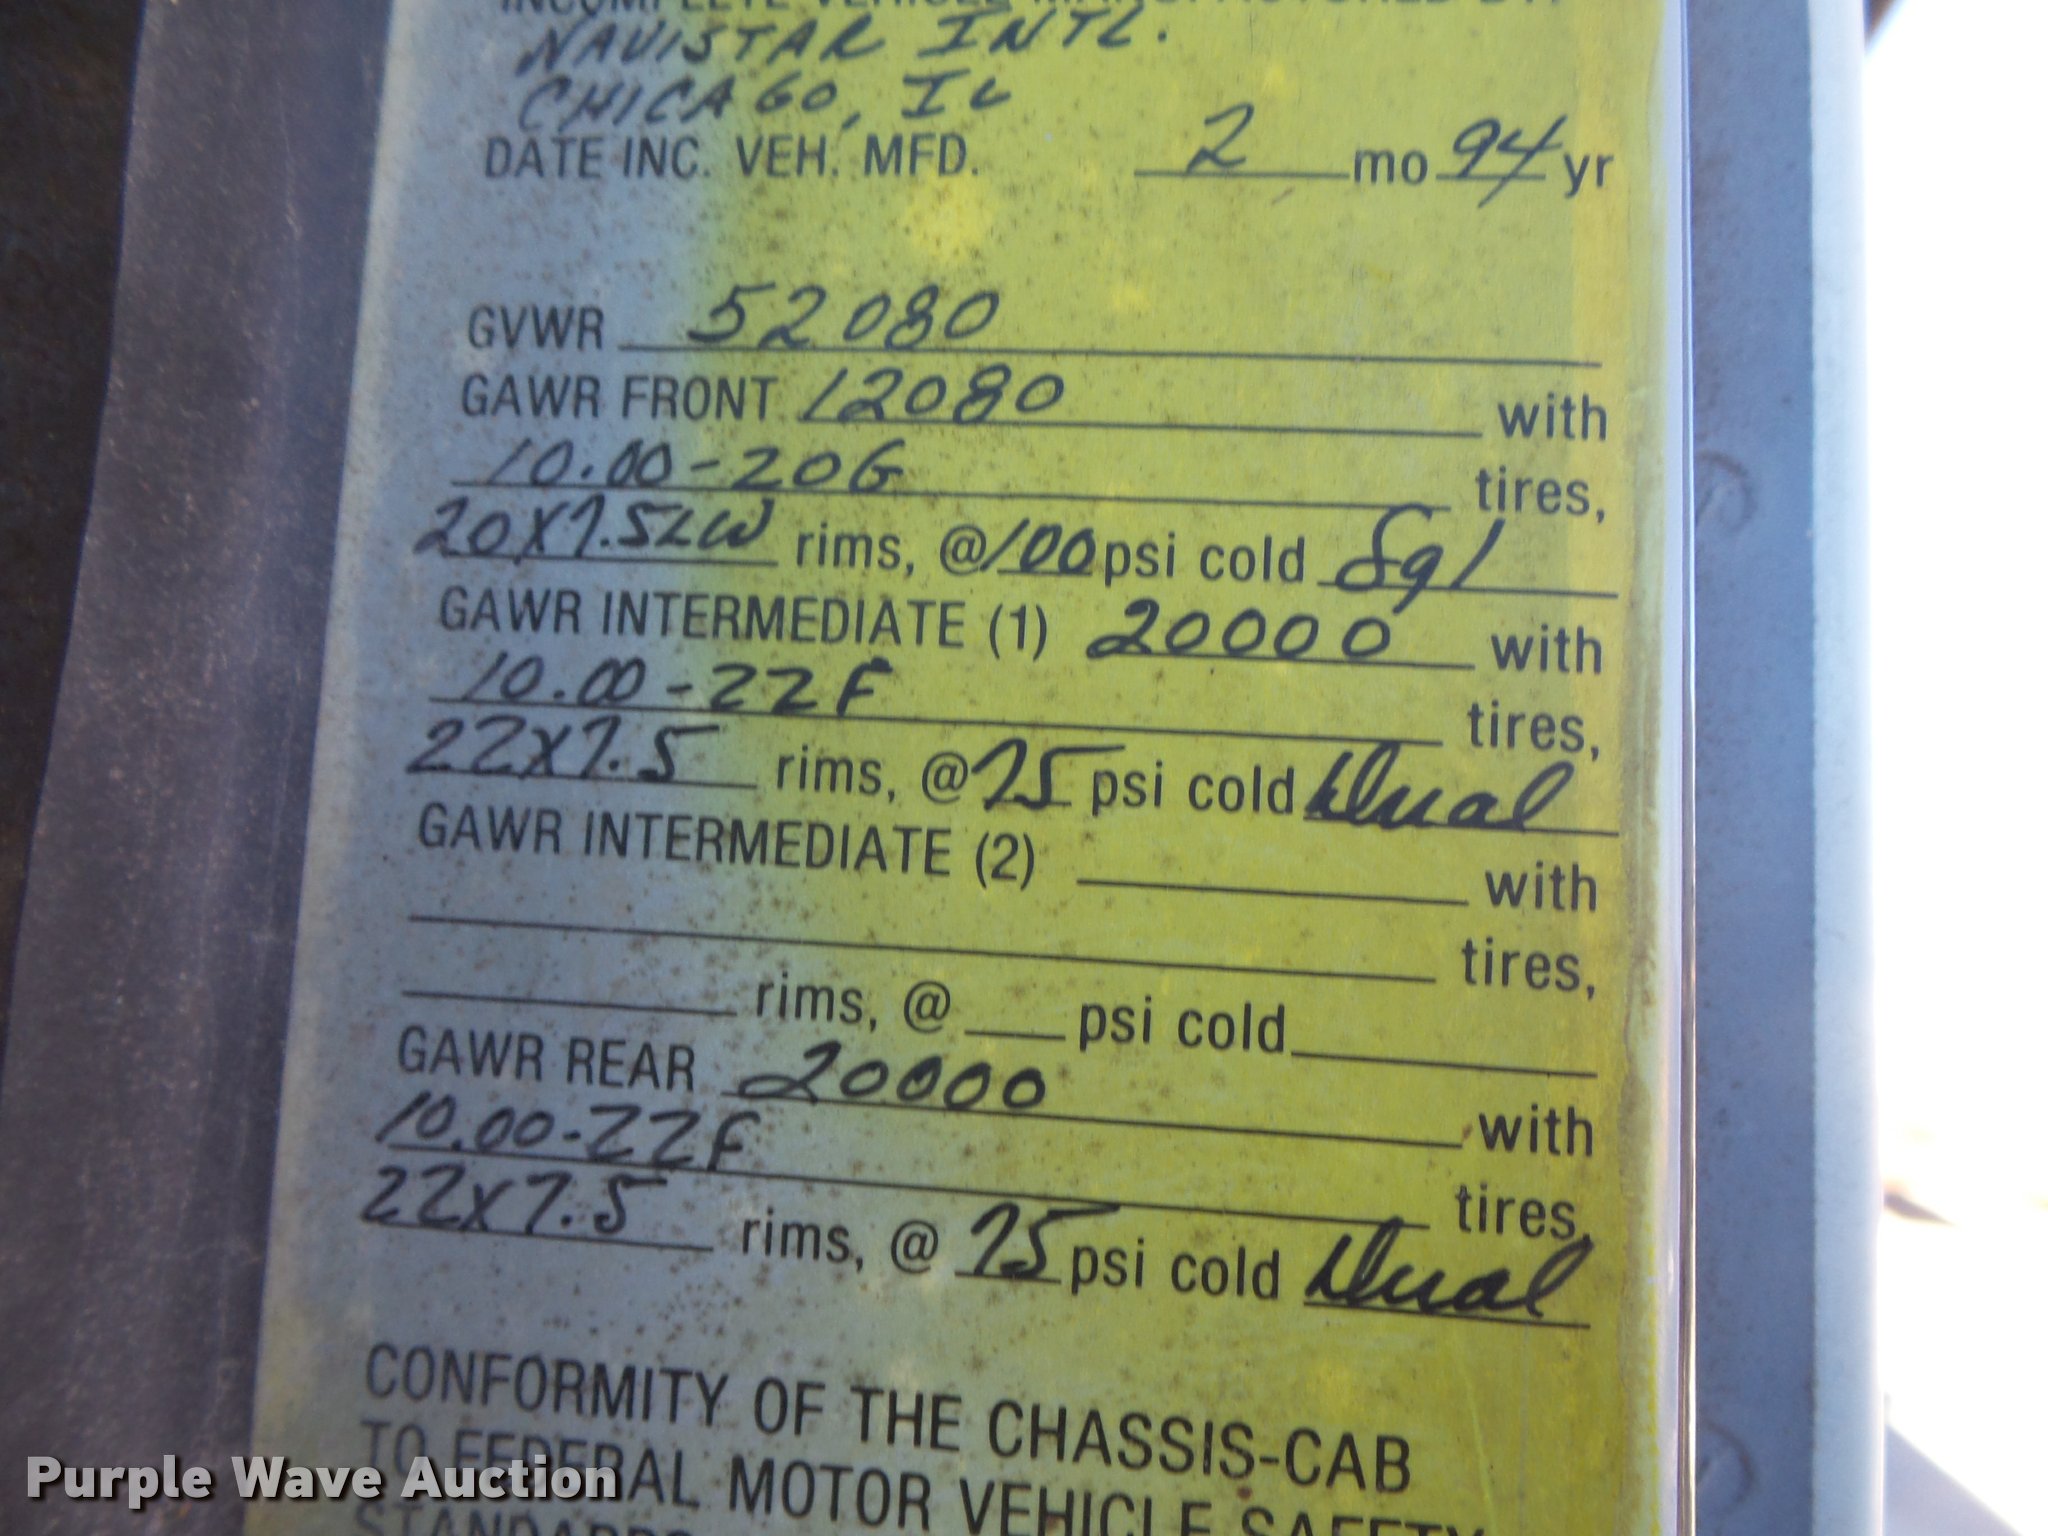 INCOMPLETE VEHICLE MANUFACTURED BY:
NAVISTAR INTL.
CHICAGO, IL
DATE INC. VEH. MFD. 2 mo 94 yr
GVWR 52080
GAWR FRONT 12080 with
10.00-20G tires,
20X7.5LW rims, @100 psi cold Sgl
GAWR INTERMEDIATE (1) 20000 with
10.00-22F tires,
22X7.5 rims, @75 psi cold Dual
GAWR INTERMEDIATE (2) with
tires,
rims, @ psi cold
GAWR REAR 20000 with
10.00-22F tires,
22X7.5 rims, @ 75 psi cold Dual
CONFORMITY OF THE CHASSIS-CAB
TO FEDERAL MOTOR VEHICLE SAFETY
STANDARDS
Purple Wave Auction